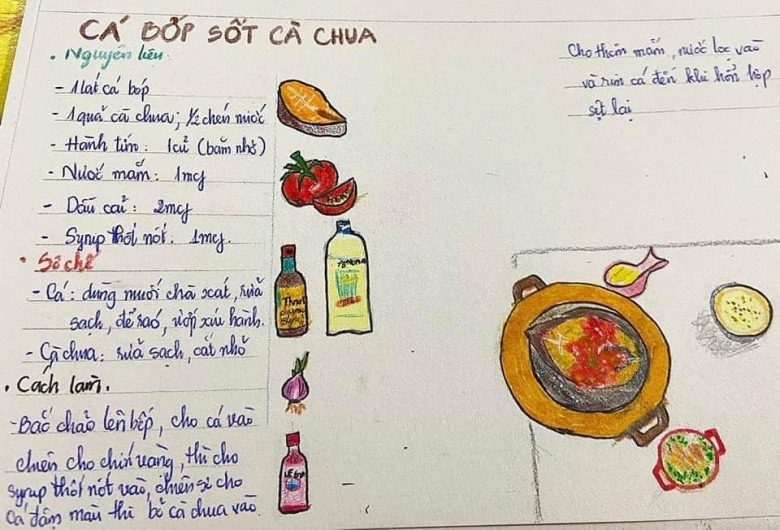 CÁ BỚP SỐT CÀ CHUA
• Nguyên liệu
- 1 lát cá bớp
- 1 quả cà chua; 1/2 chén nước
- Hành tím: 1 củ (băm nhỏ)
- Nước mắm: 1mcf
- Dầu cải: 2mcf
- Syrup thốt nốt: 1mcf.
• Sơ chế
- Cá: dùng muối chà xát, rửa
sạch, để ráo, ướp xíu hành.
- Cà chua: rửa sạch, cắt nhỏ
• Cách làm.
- Bắc chảo lên bếp, cho cá vào
chiên cho chín vàng, thì cho
syrup thốt nốt vào, chiên sẽ cho
cá đậm màu thì bỏ cà chua vào.
Cho thêm mắm, nước lọc vào
và rim cá đến khi hỗn hợp
sệt lại
Thnot